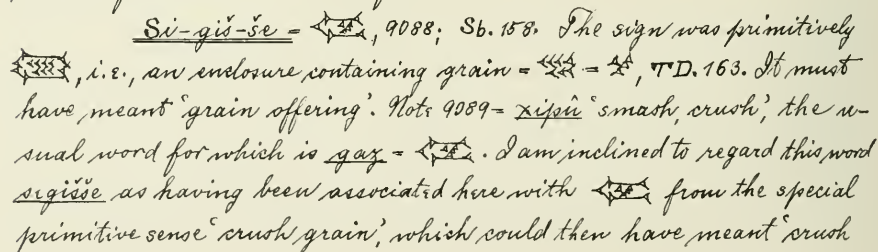 Si-giš-še = , 9088; Sb. 158. The sign was primitively
, i.e., an enclosure containing grain = = , TD. 163. It must
have meant ‘grain offering’. Note 9089 = xipû ‘smash, crush’, the u-
sual word for which is gaz = . I am inclined to regard this word
sigišše as having been associated here with from the special
primitive sense ‘crush grain’, which could then have meant ‘crush